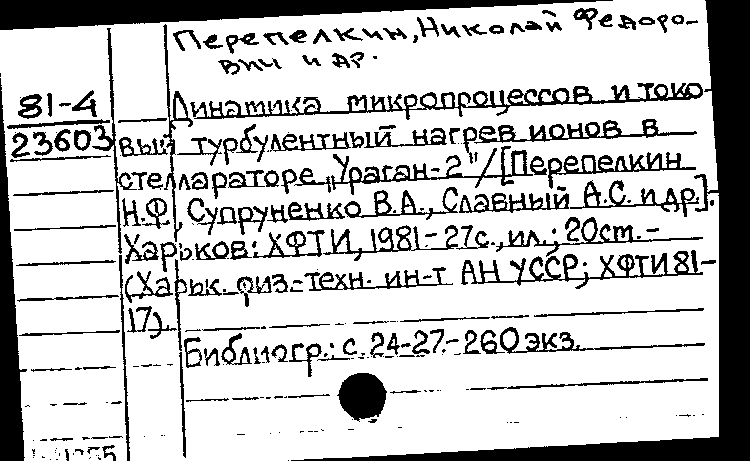 Перепелкин, Николай Федоро-
вич и др.
81-4
23603
Динамика микропроцессов и токо-
вый турбулентный нагрев ионов в
стеллараторе „Ураган-2"/[Перепелкин
Н.Ф., Супруненко В.А., Славный А.С. и др.].-
Харьков: ХФТИ, 1981.- 27с., ил.; 20ст.-
(Харьк. физ.-техн. ин-т АН УССР; ХФТИ 81-
17).
Библиогр.: с. 24-27.- 260 экз.